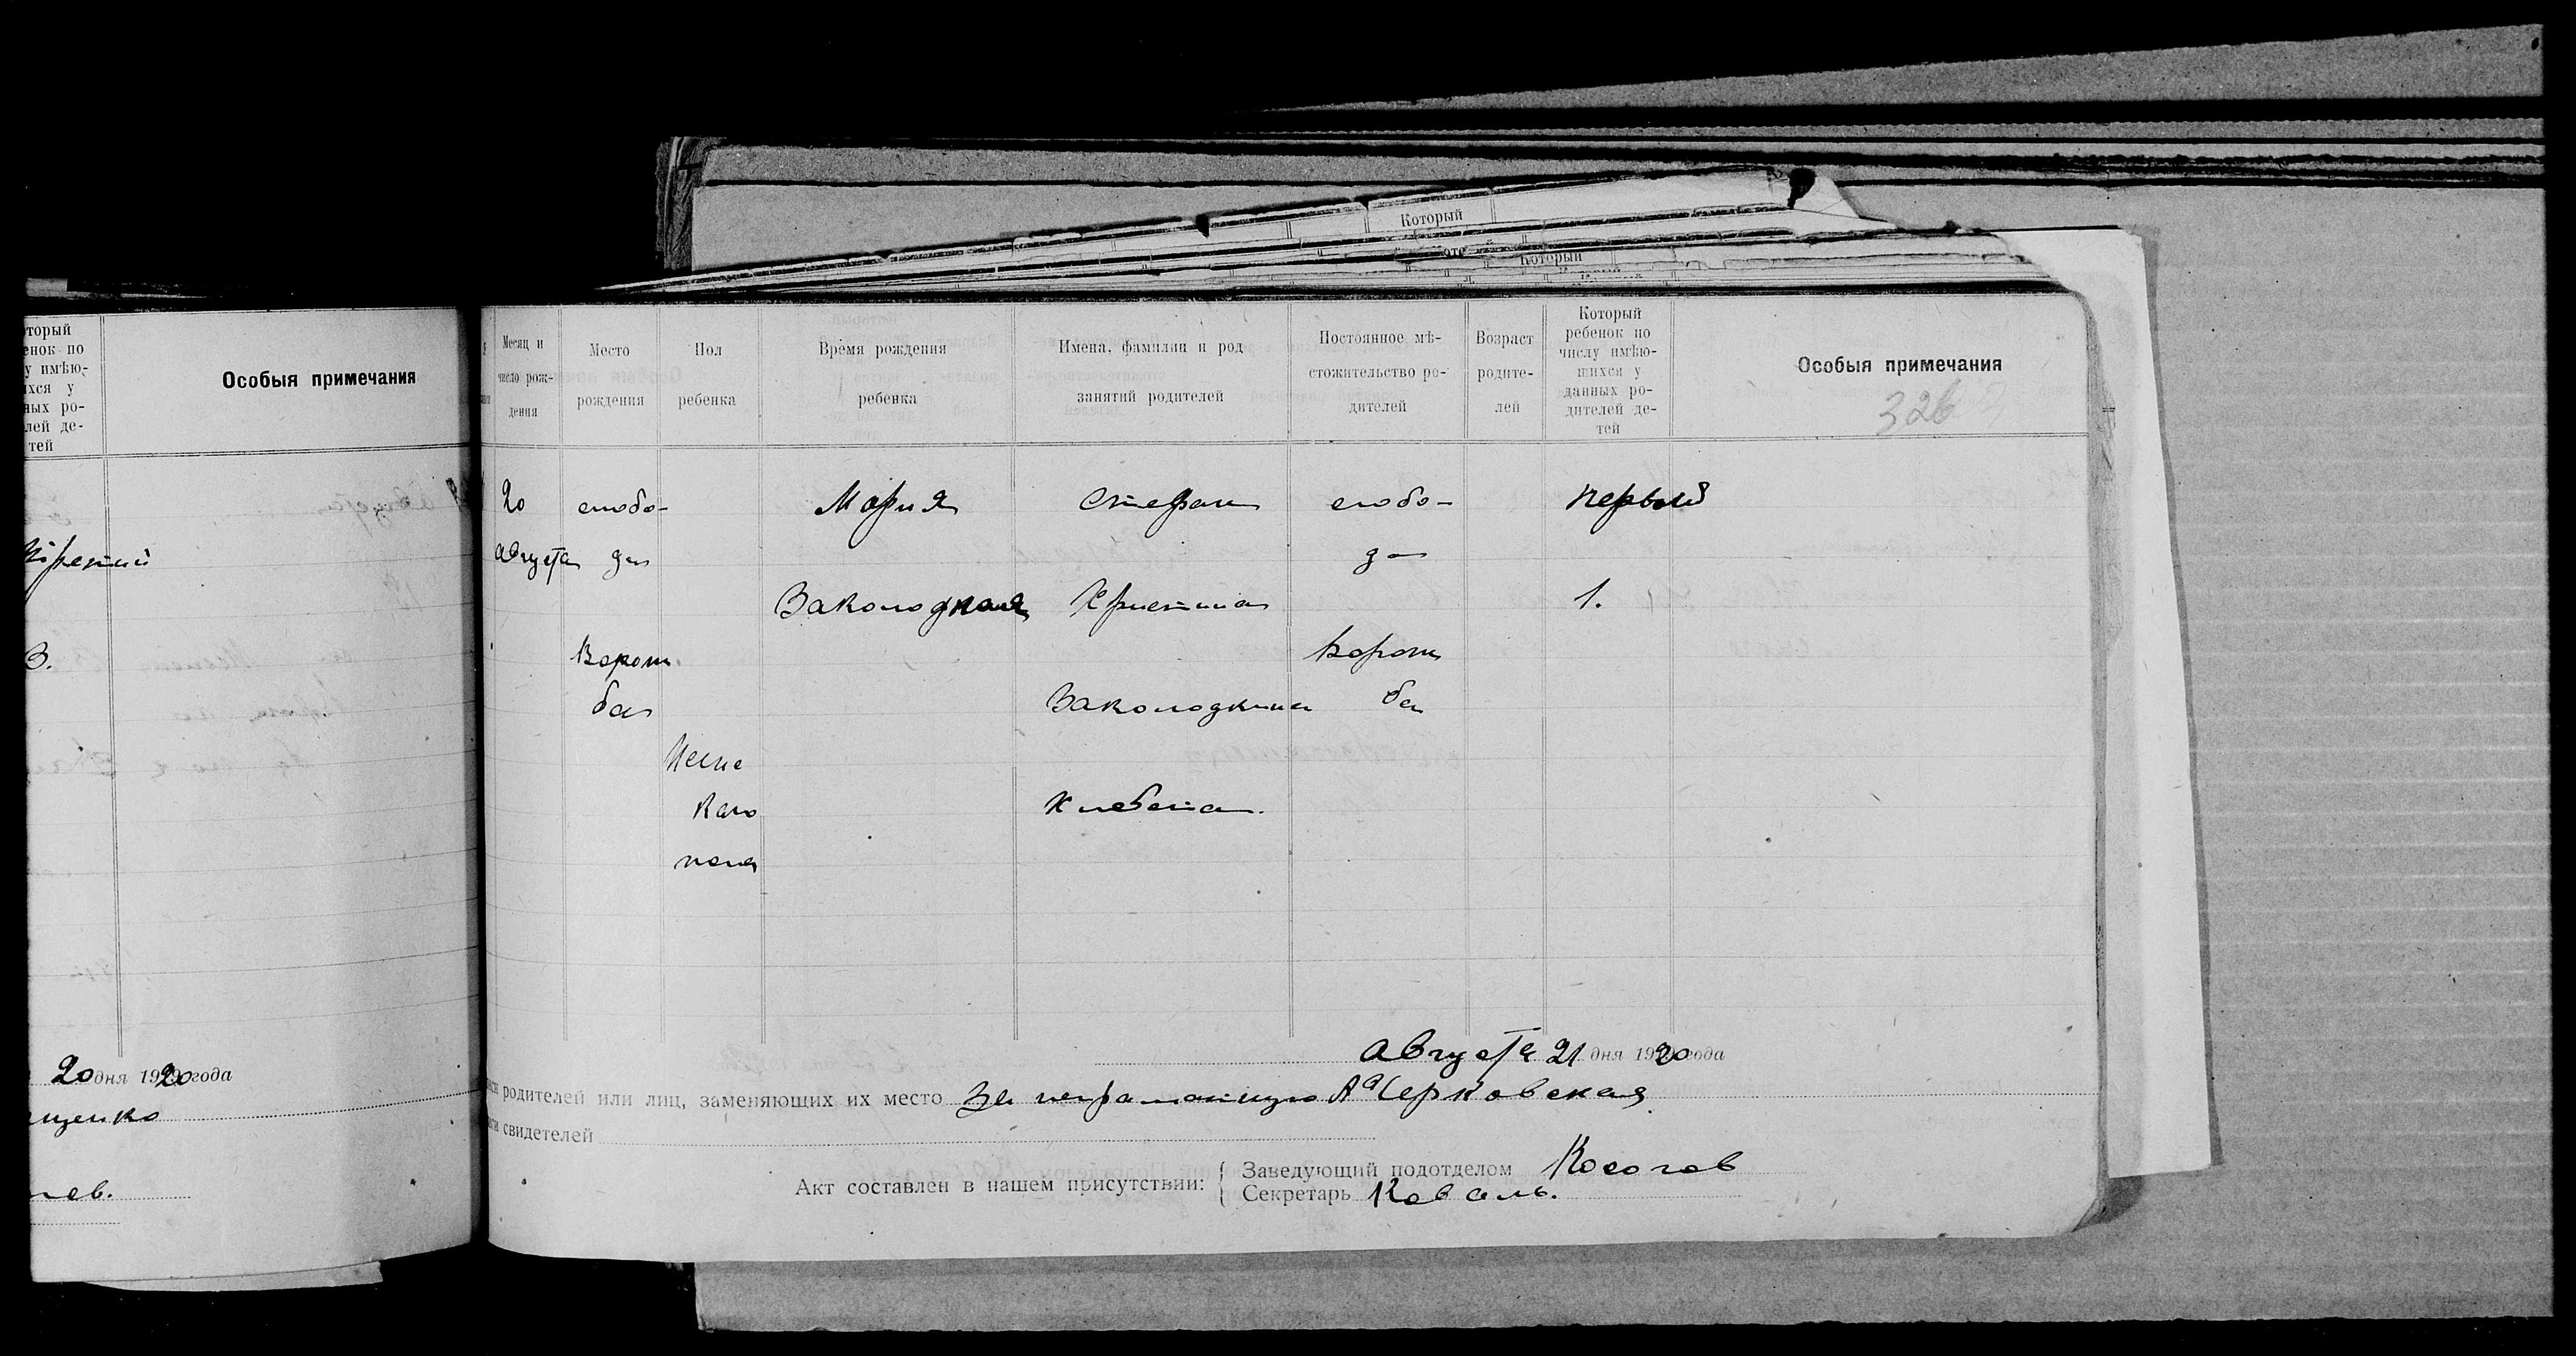 Который
Который
оторый
енок по
у имѣю-
ихся у
ных ро-
лей де-
тей
Особыя примечания
третий
3.
20 дня 1920 года
щенко
Месяц и
число рож-
дения
Место
рождения
Пол
ребенка
Время рождения
ребенка
Имена, фамилии и род
занятий родителей
Постоянное мѣ-
стожительство ро-
дителей
Возраст
родите-
лей
Который
ребенок по
числу имѣю-
щихся у
данных ро-
дителей де-
тей
Особыя примечания
326
20 слобо- Мария Стефан слобо- первый
августа да да
Заколодная Христина 1.
Ворож Ворож
ба Заколодкина ба
Женс
каго Хлебопа.
пола
Августа 21 дня 1920 года
родителей или лиц, заменяющих их место За неграмотную А Серковская
свидетелей
Акт составлен в нашем присутствии:
Заведующий подотделом Косогов
Секретарь Коваль.